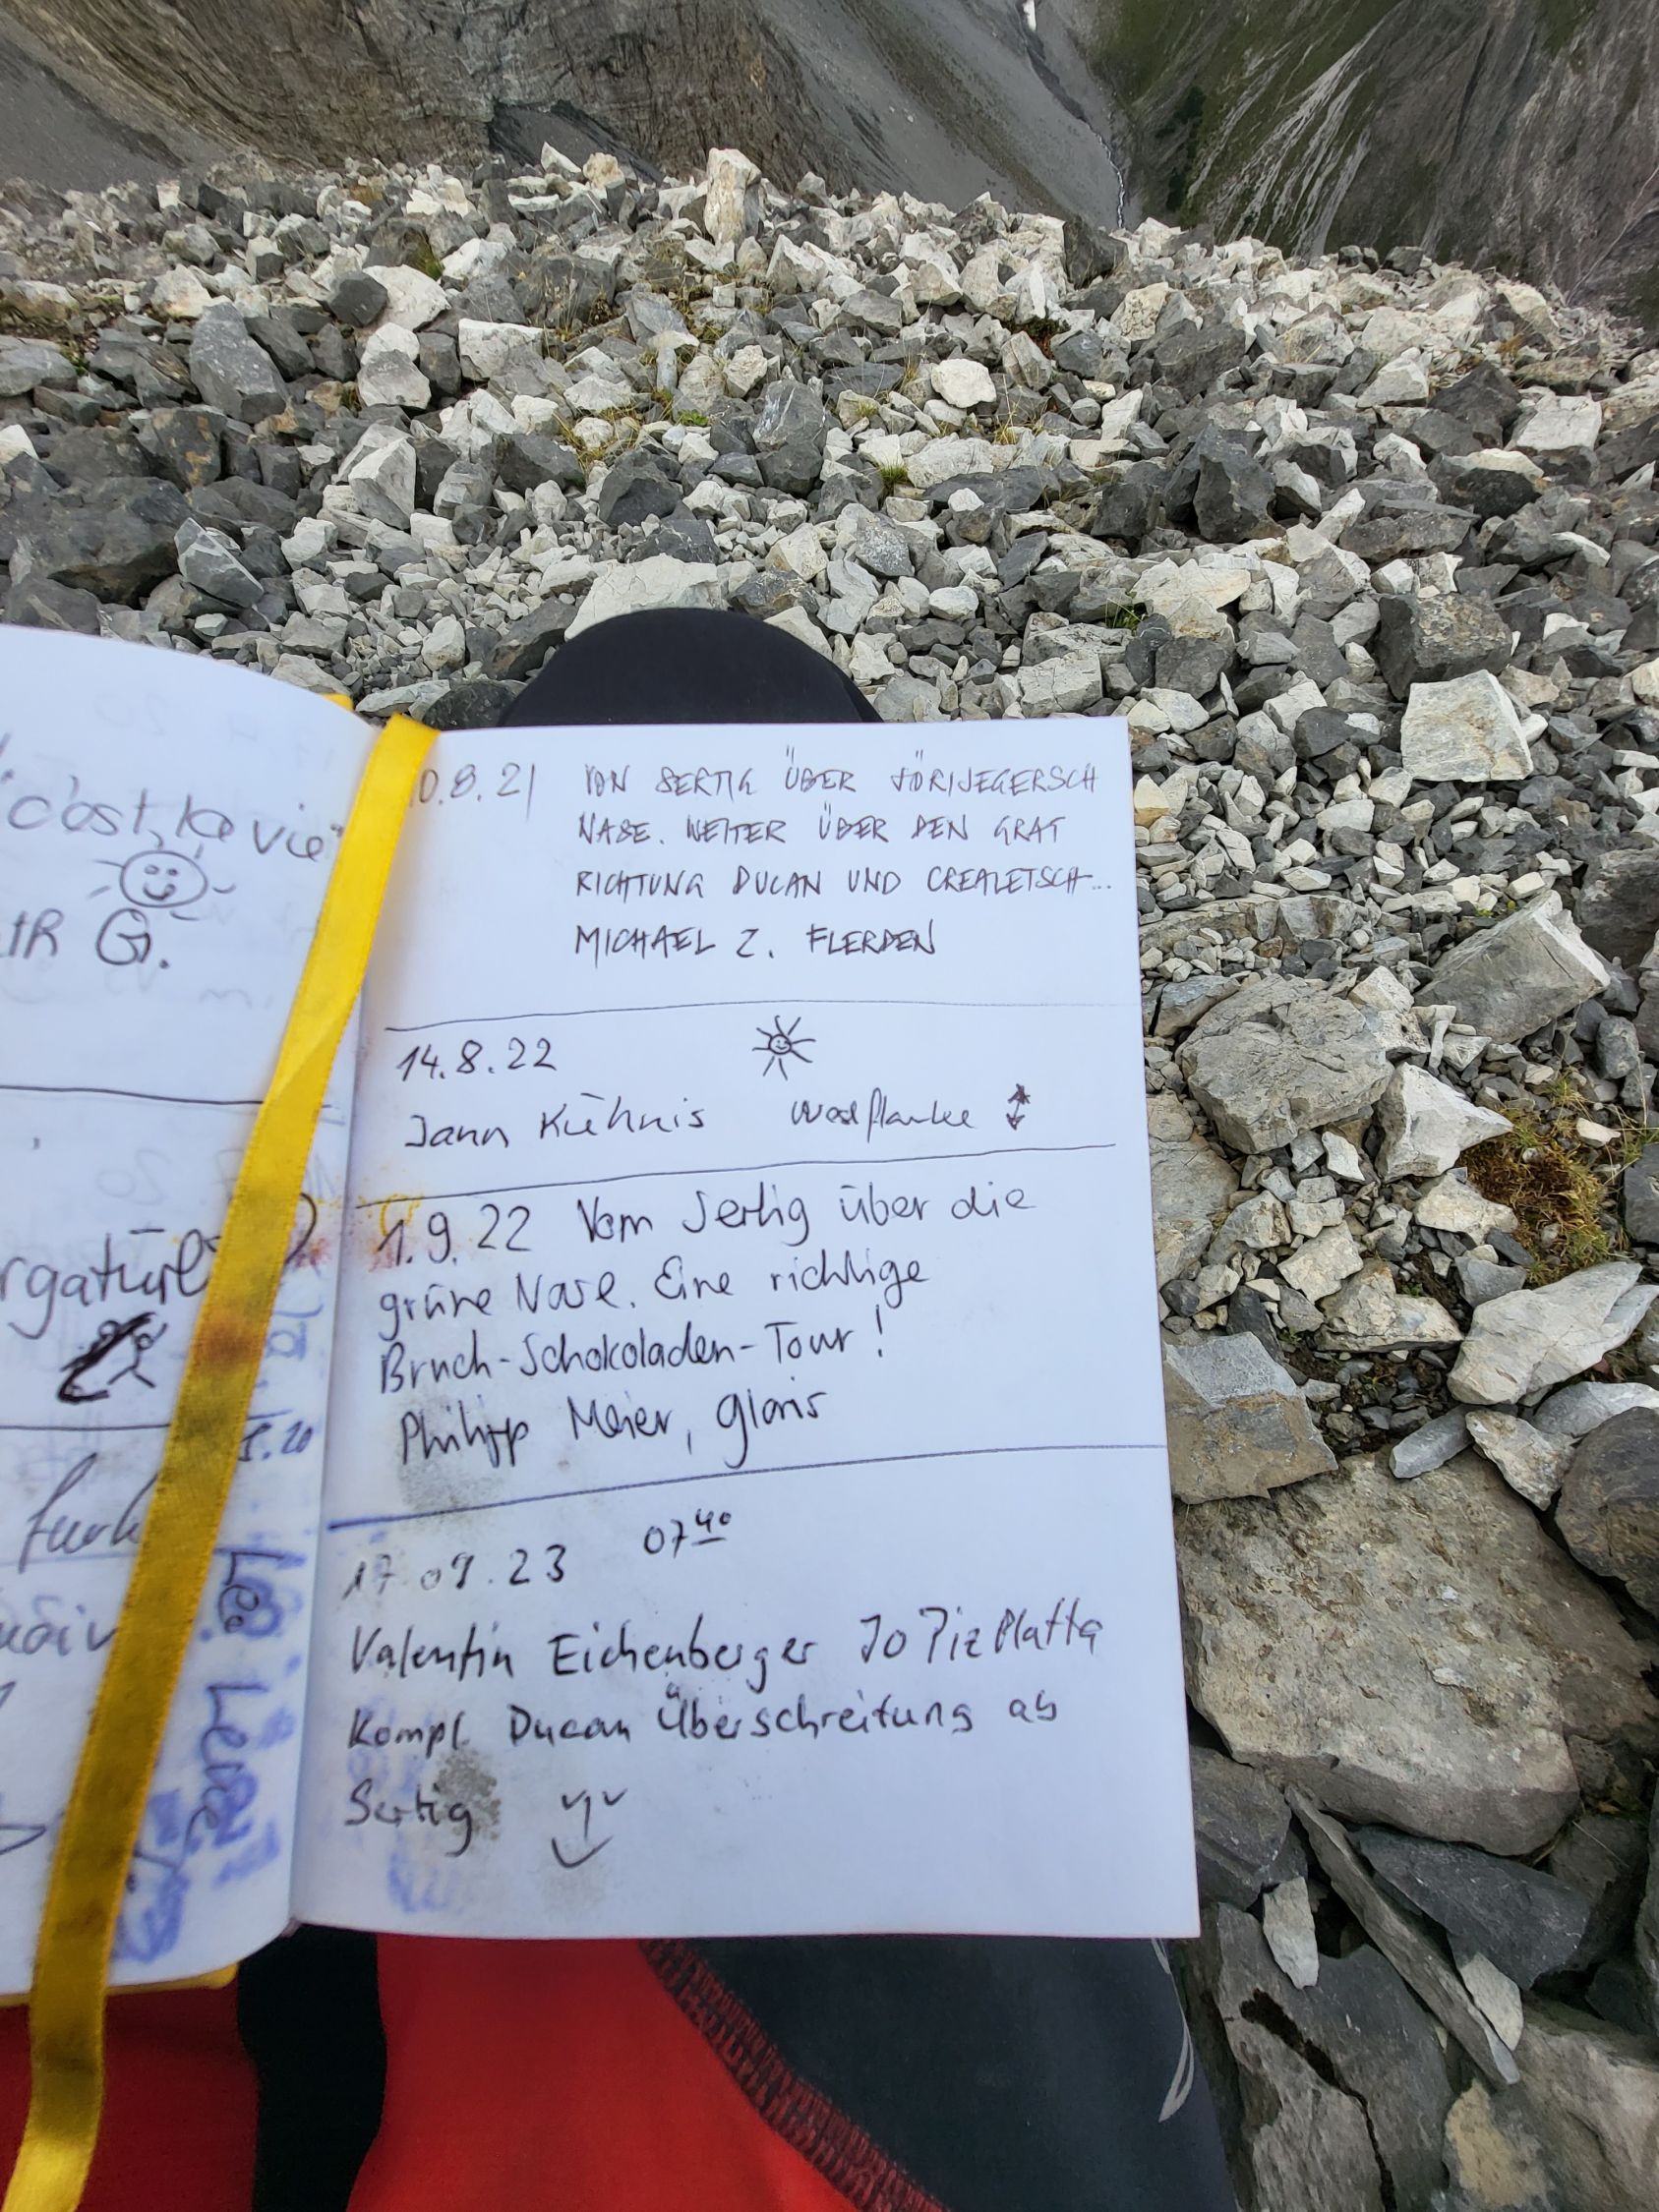 c'est la vie"
G.
0.8.21 VON SERTIG ÜBER JÖRIJEGERSCH
NASE. WEITER ÜBER DEN GRAT
RICHTUNG DUCAN UND CREALETSCH...
MICHAEL Z. FLERDEN
14.8.22
Jann Kühnis Westflanke
1.9.22 Vom Sertig über die
grüne Nase. Eine richtige
Bruch-Schokoladen-Tour!
Philipp Meier, Glaris
17.09.23 07⁴⁰
Valentin Eichenberger JO Piz Platta
Kompl. Ducan Überschreitung ab
Sertig